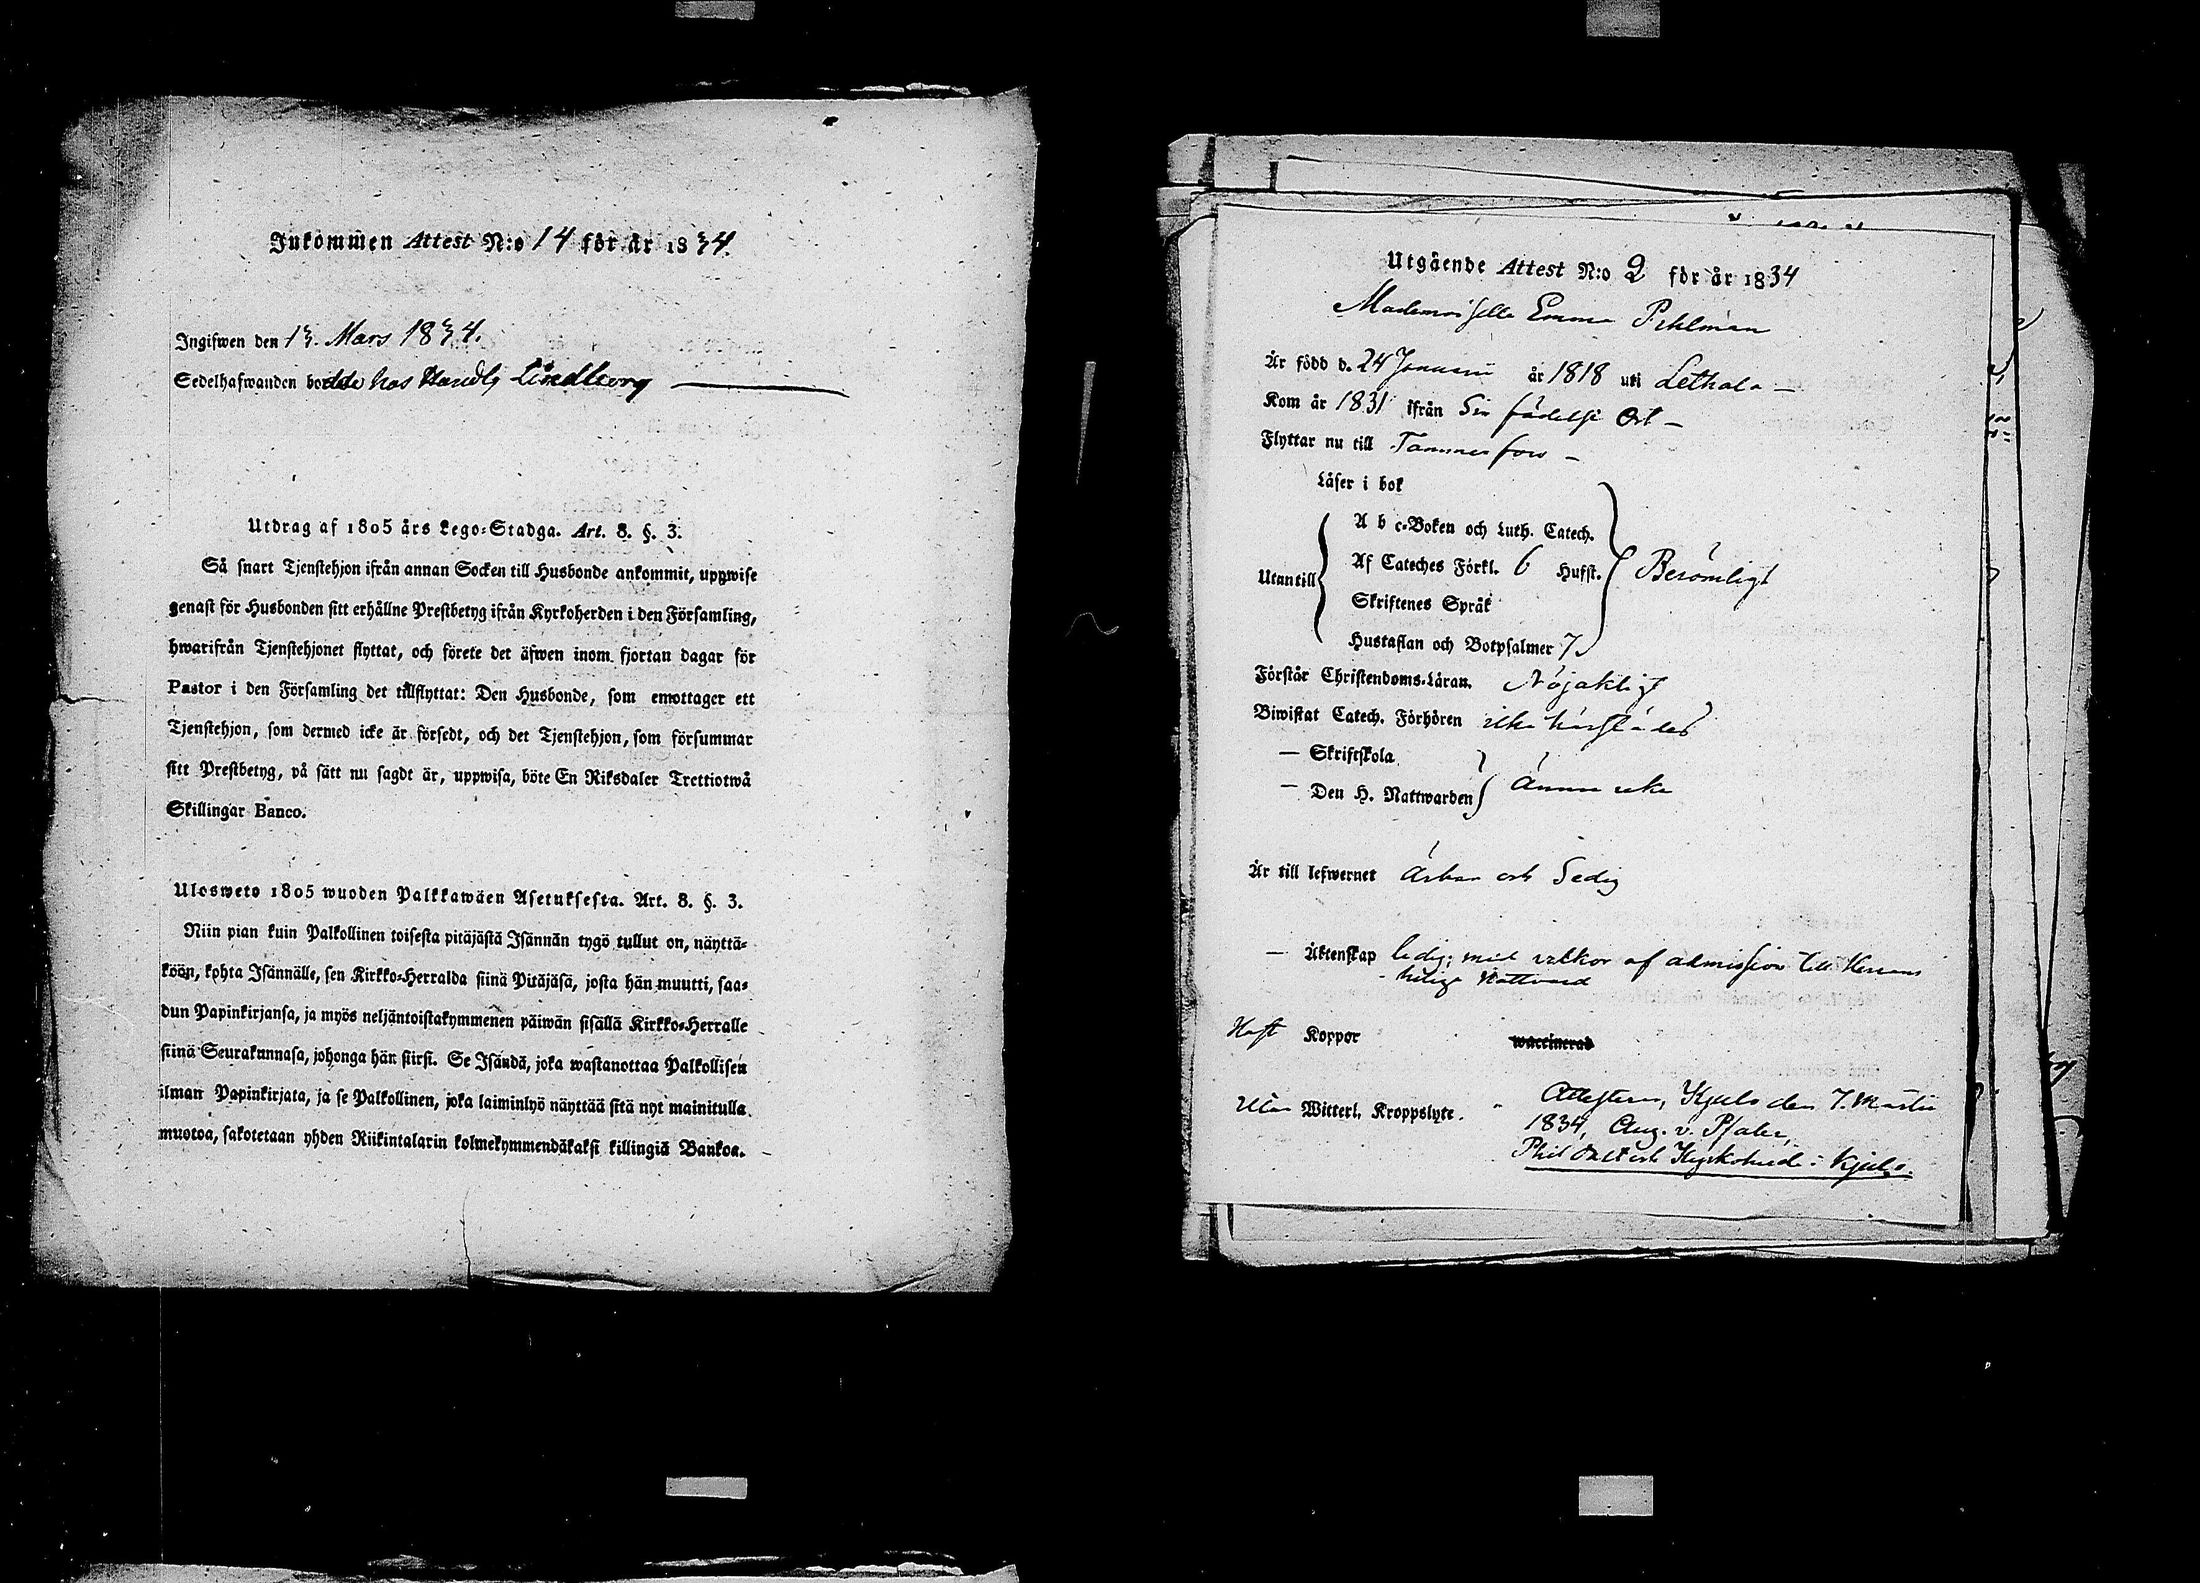 Inkommen Attest N:o 14 för år 1834.
Ingifwen den 13. Mars 1834.
Sedelhafwanden bordde hos Handlg Lindberg
Utdrag af 1805 års Lego-Stadga. Art. 8. §. 3.
Så snart Tjenstehjon ifrån annan Socken till Husbonde ankommit, uppwise
genast för Husbonden sitt erhållne Prestbetyg ifrån Kyrkoherden i den Församling,
hwarifrån Tjenstehjonet flyttat, och förete det äfwen inom fjortan dagar för
Pastor i den Församling det tillflyttat: Den Husbonde, som emottager ett
Tjenstehjon, som dermed icke är försedt, och det Tjenstehjon, som försummar
sitt Prestbetyg, på sätt nu sagdt är, uppwisa, böte En Riksdaler Trettiotwå
Skillingar Banco.
Ulosweto 1805 wuoden Palkkawäen Asetuksesta. Art. 8. §. 3.
Niin pian kuin Palkollinen toisesta pitäjästä Isännän tygö tullut on, näyttä-
köön, kohta Isännälle, sen Kirkko-Herralda siinä Pitäjäsä, josta hän muutti, saa-
dun Papinkirjansa, ja myös neljäntoistakymmenen päiwän sisällä Kirkko-Herralle
siinä Seurakunnasa, johonga hän siirsi. Se Isändä, joka wastanottaa Palkollisen
ilman Papinkirjata, ja se Palkollinen, joka laiminlyö näyttää sitä nyt mainitulla
muotoa, sakotetaan yhden Riikintalarin kolmekymmendäkaksi killingiä Bankoa.
Utgående Attest N:o 2 för år 1834
Mademoiselle Emma Pehlman
Är född d. 24 Januarii år 1818 uti Lethala
Kom år 1831 ifrån Sin födelse Ort
Flyttar nu till Tammerfors
Läser i bok
A b c-Boken och Luth. Catech.
Utantill Af Cateches Förkl. 6 Hufst. Berömligt
Skriftenes Språk
Hustaflan och Botpsalmer 7
Förstår Christendoms-Läran. Nöjaktigt
Biwistat Catech. Förhören icke härstädes
— Skriftskola
— Den H. Nattwarden Ännu icke
Är till lefwernet Ärbar och Sedig
— Äktenskap ledig; med vilkor af admission till Herrans
heliga Nattvard
Haft Koppor waccinerad
Utan Witterl. Kroppslyte.
Attesterar, Kjulo den 7. Martii
1834, Aug. v. Pfaler,
Phil Doct och Kyrkoherde i Kjulo.